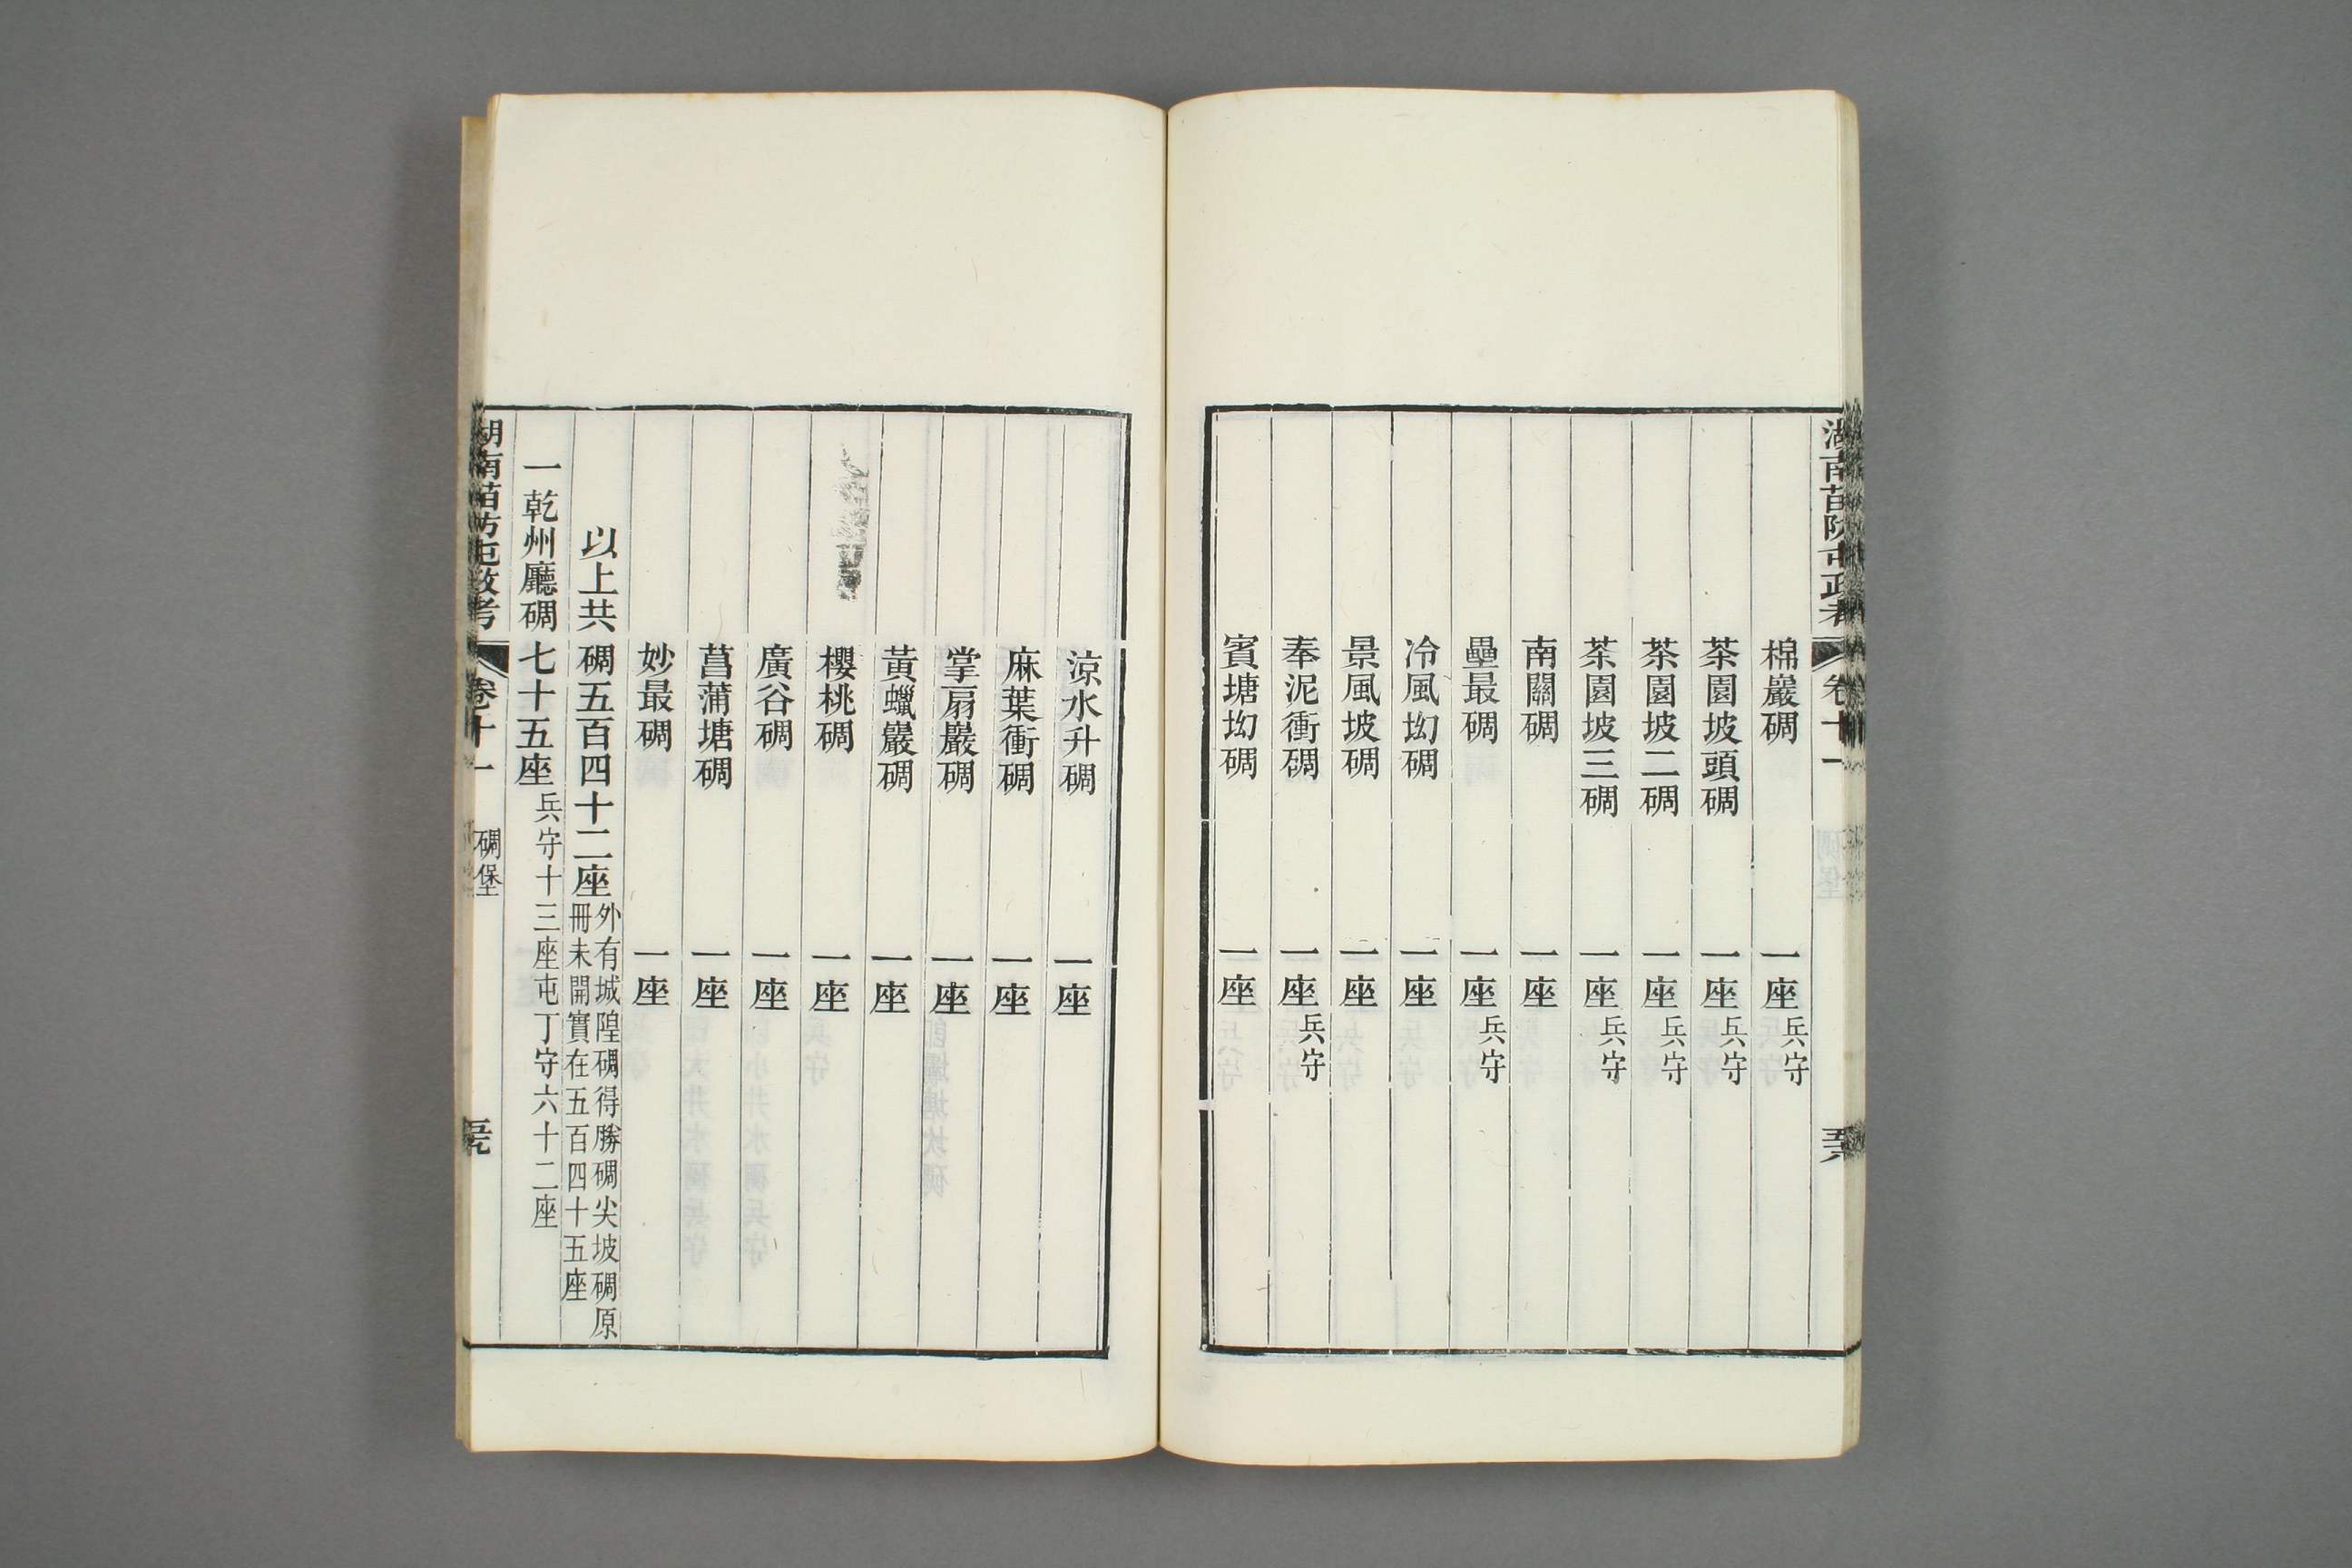 湖南苗防屯政考 卷十一
棉巖碉 一座兵守
茶園坡頭碉 一座兵守
茶園坡二碉 一座兵守
茶園坡三碉 一座兵守
南關碉 一座
壘最碉 一座兵守
冷風坳碉 一座
景風坡碉 一座
奉泥衝碉 一座兵守
賓塘坳碉 一座
涼水升碉 一座
麻葉衝碉 一座
掌扇巖碉 一座
黃蠟巖碉 一座
櫻桃碉 一座
廣谷碉 一座
菖蒲塘碉 一座
妙最碉 一座
以上共碉五百四十二座外有城隍碉得勝碉尖坡碉原
冊未開實在五百四十五座
一乾州廳碉七十五座兵守十三座屯丁守六十二座
湖南苗防屯政考 卷十一 碉堡